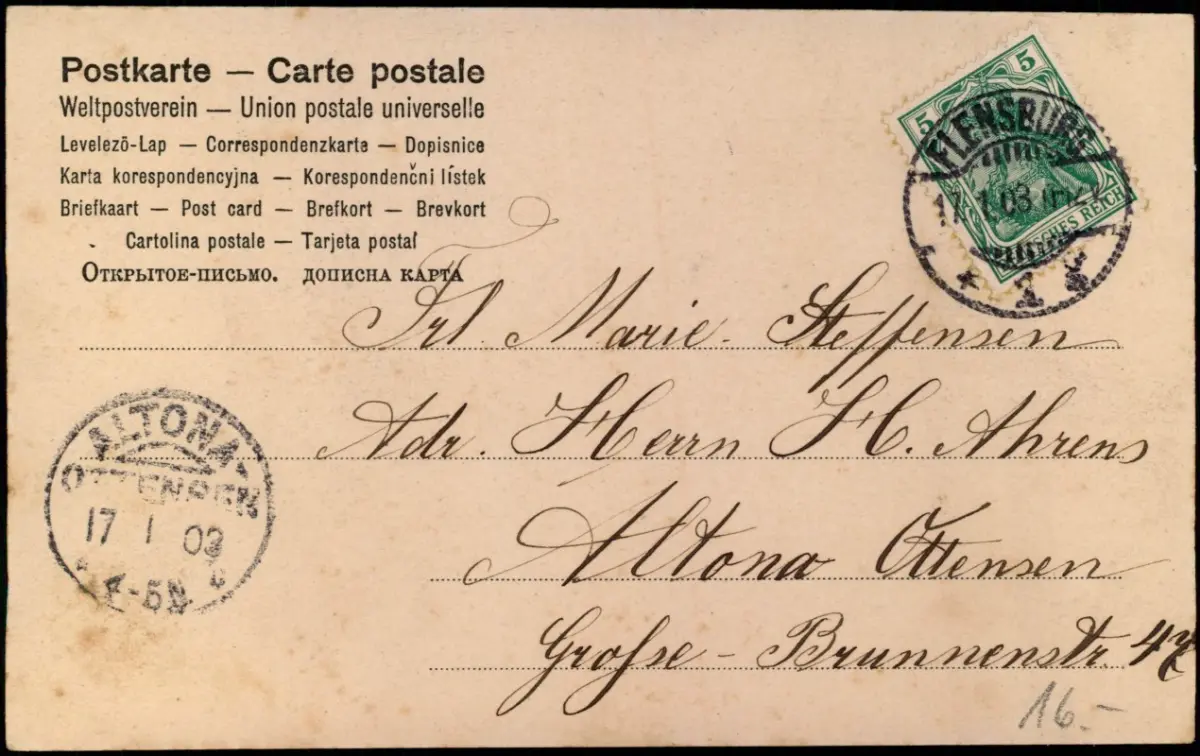 Postkarte — Carte postale
Weltpostverein — Union postale universelle
Levelező-Lap — Correspondenzkarte — Dopisnice
Karta korespondencyjna — Korespondenčni lístek
Briefkaart — Post card — Brefkort — Brevkort
Cartolina postale — Tarjeta postal
Открытое-письмо. дописна карта
5
5
DEUTSCHES REICH
FLENSBURG
17.1.03
* 1
Frl. Marie Steffensen
Adr. Herrn H. Ahrens
Altona Ottensen
Große-Brunnenstr.
ALTONA-
OTTENSEN
17 1 03
16.-